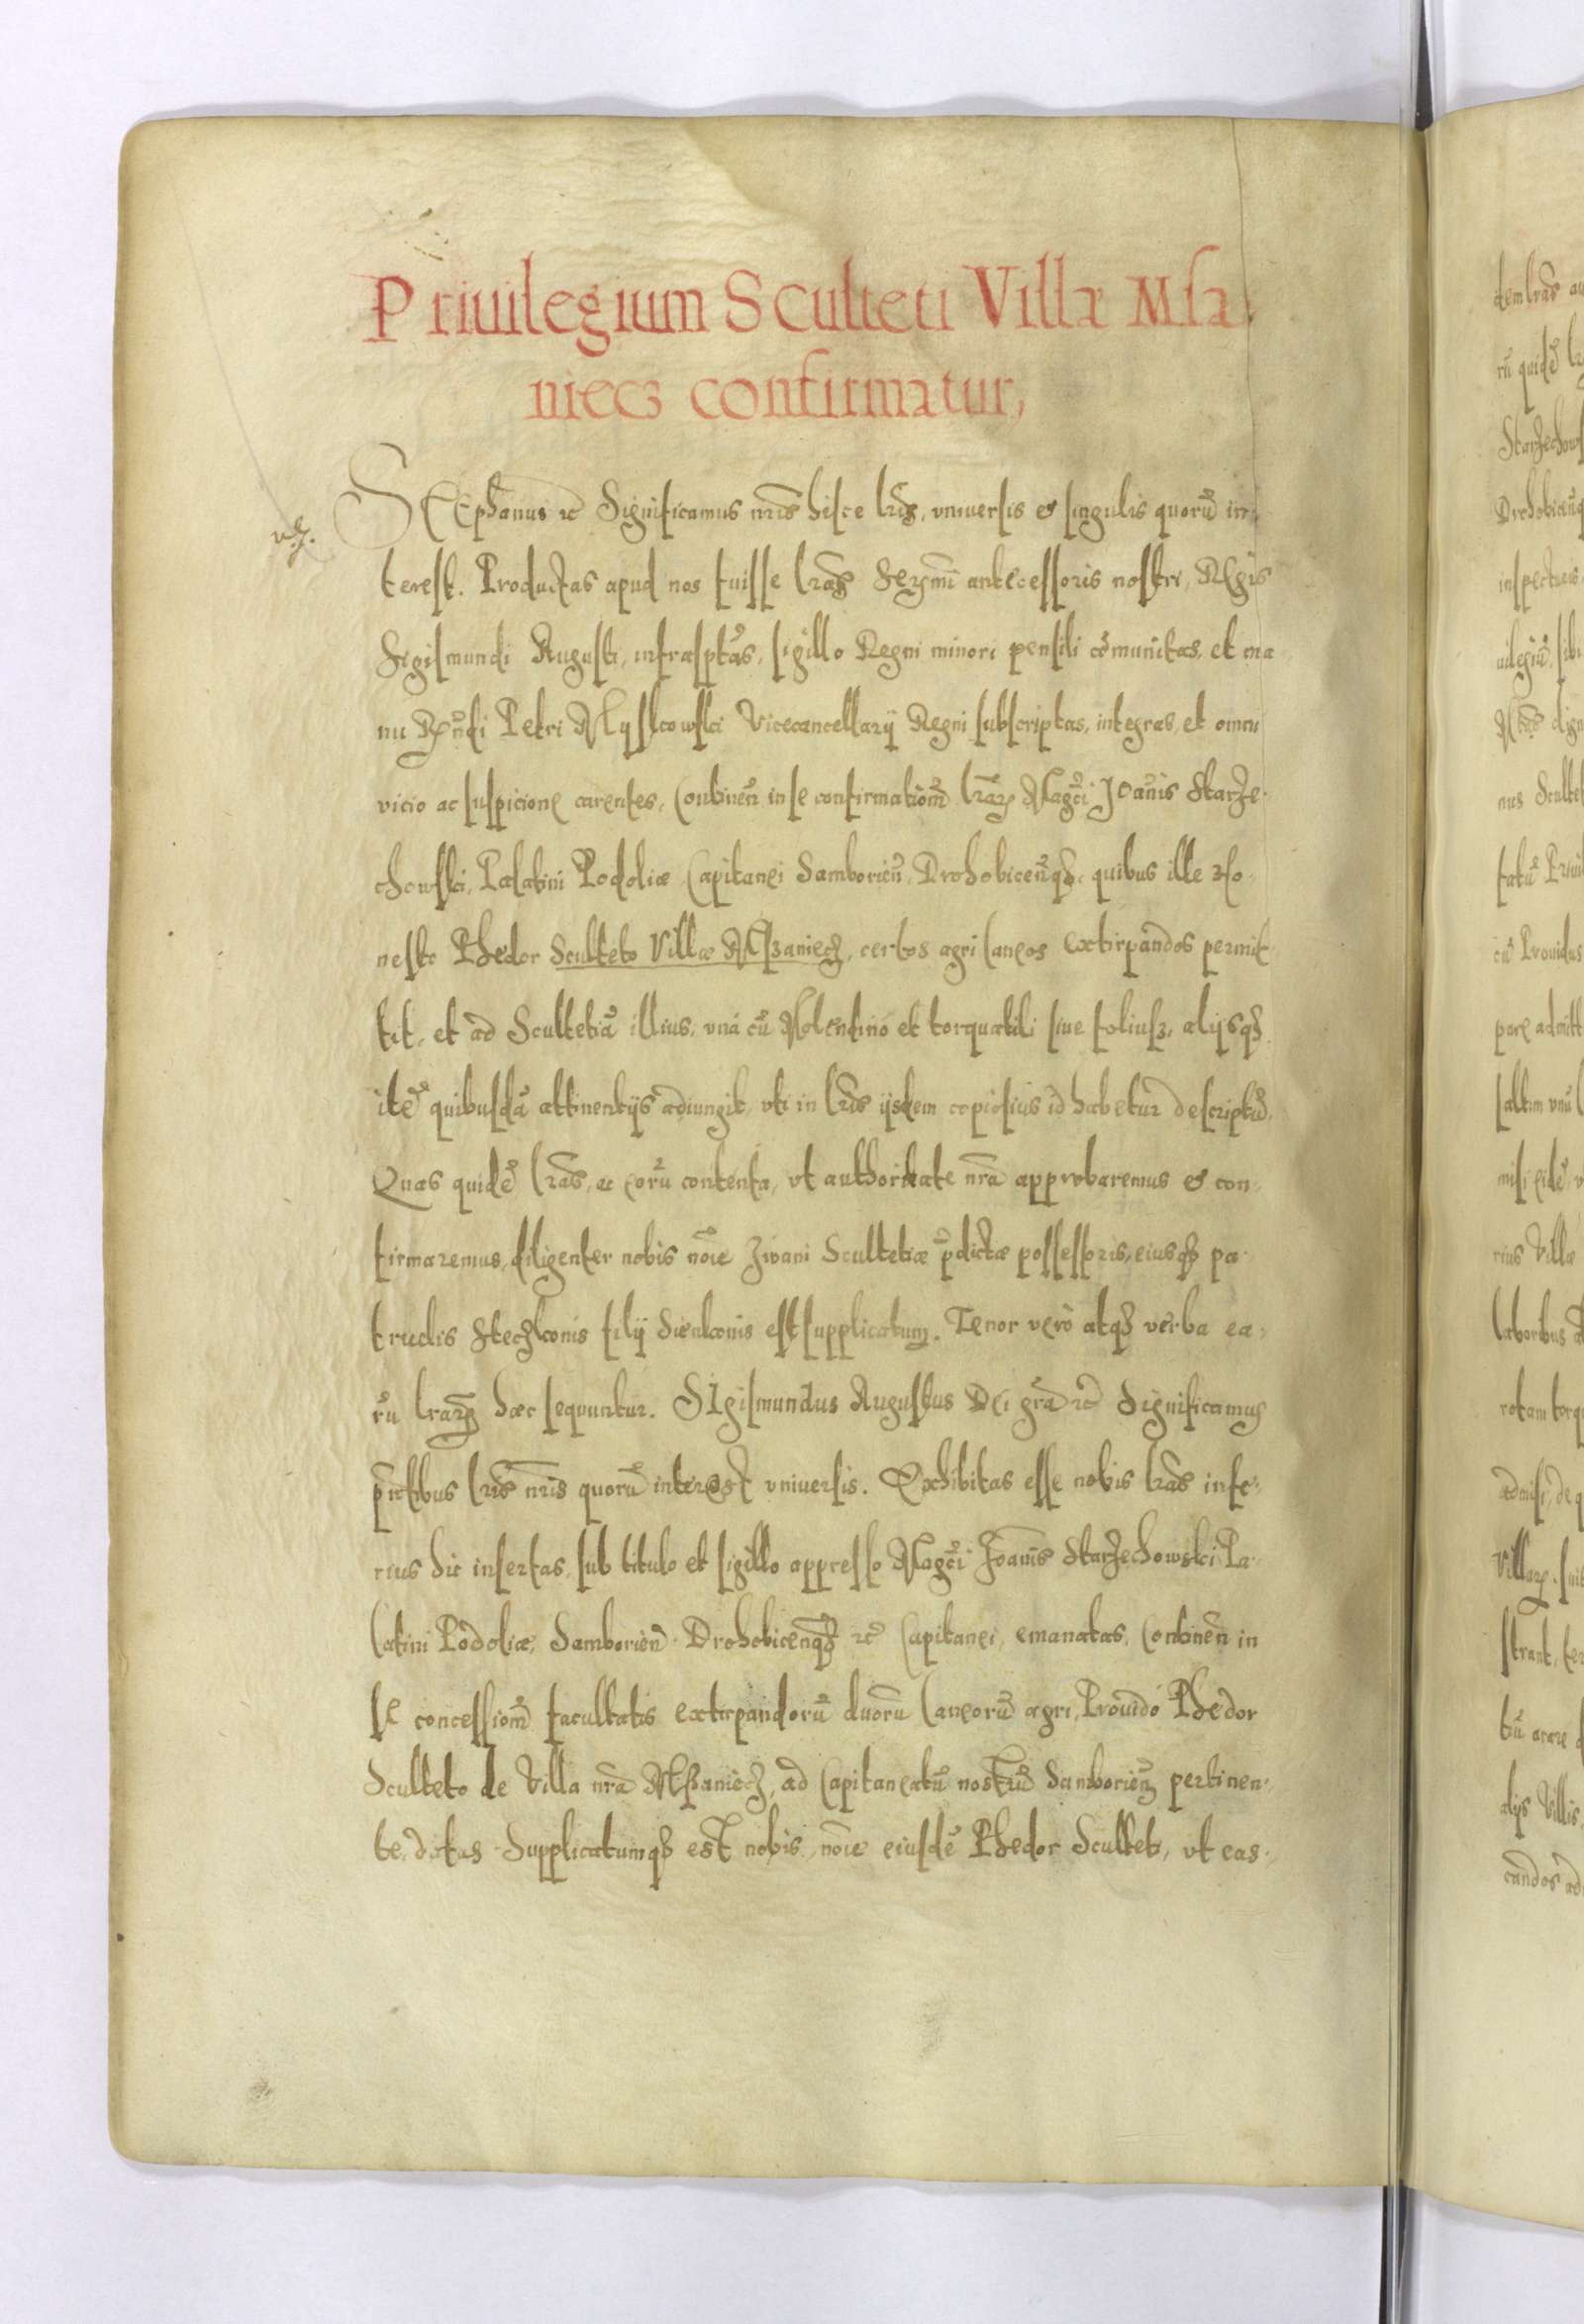 Priuilegium Sculteti Villæ Msa,
niecz confirmatur,
STEphanus etc Significamus nr̃is hisce lr̃is, vniuersis et singulis quorũ in,
terest. Productas apud nos fuisse lr̃as Serm̃i antecessoris nostri, REgis
Sigismundi Augusti, infrasptas, sigillo Regni minori pensili cõmunitas, et ma
nu Rndi Petri Myskowski Vicecancellarij Regni subscriptas, integras, et omni
vicio ac suspicione carentes, Contineñ in se confirmationẽ lr̃aꝝ Magci Joãnis Starze,
chowski, Palatini Podoliæ Capitanei Samborieñ, Drohobiceñqꝫ, quibus ille Ho,
nesto Phedor Sculteto Villæ Mszaniecz, certos agri laneos extirpandos permit
tit, et ad Scultetiã illius, vná cũ Molendino et torquatili siue foliusz, alijsqꝫ
itẽ quibusdã attinentijs adiungit, vti in lr̃is ijsdem copiosius id habetur descriptũ.
Quas quidẽ lr̃as, ac eorũ contenta, vt authoritate nr̃a approbaremus et con,
firmaremus, diligenter nobis noĩe Iwani Scultetiæ p̃dictæ possessoris, eiusqꝫ pa
truelis Steczkonis filij Sienkonis est supplicatum. Tenor verò atqꝫ verba ea,
rũ lr̃aꝝ hæc sequuntur. SIgismundus Augustus DEi gr̃a etc Significamus
p̃ntibus lr̃is nr̃is quorũ interest vniuersis. Exhibitas esse nobis lr̃as infe,
rius hic insertas, sub titulo et sigillo appresso Magci Joannis Starzechowski Pa,
latini Podoliæ, Samborieñ Drohobiceñqꝫ etc Capitanei, emanatas, Contineñ in
se concessionẽ facultatis extirpandorũ duorũ laneorũ agri, Prouido Phedor
Sculteto de Villa nr̃a Mszaniecz, ad Capitaneatũ nostrũ Samborieñ pertinen,
te, datas. Supplicatumqꝫ est nobis, noĩe eiusdẽ Phedor Sculteti, vt eas,